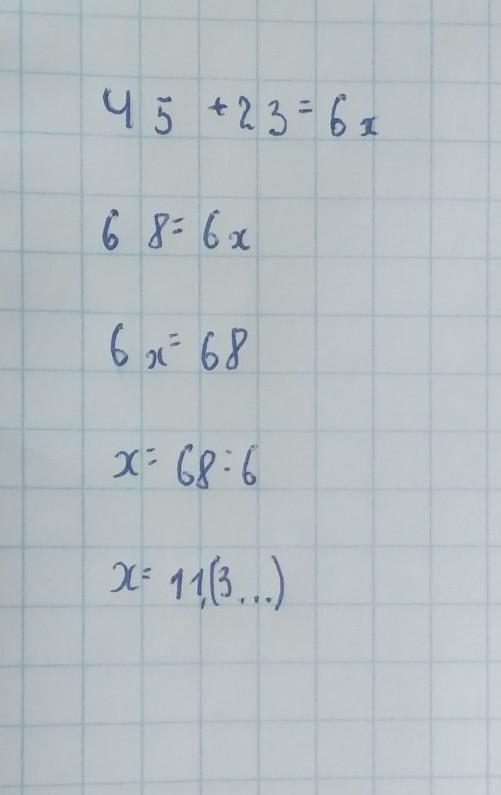 45 +23=6x
68=6x
6x=68
x=68:6
x=11,(3...)